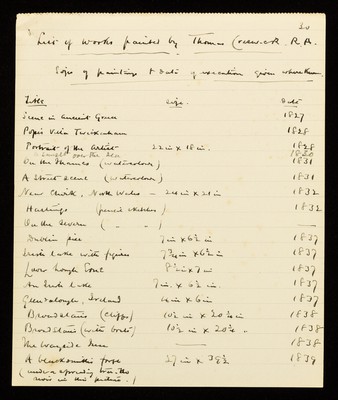 20
List of works painted by Thomas Creswick, R.A.
Size of paintings & date of execution given where known.
Title Size. Date
Scene in Ancient Greece 1827
Pope's Villa Twickenham 1828
Portrait of the Artist 22 in x 18 in. 1828
Sunset over the Sea 1830
On the Thames (watercolour) 1831
A Street scene (watercolour) 1831
New Quirk, North Wales — 24 in x 21 in 1832
Hastings (pencil sketches) 1832
On the Severn ( " " ) —
Dublin pier 7 in x 6½ in 1837
Irish Lake with figures 7¾ in x 6½ in 1837
Lower Lough Erne 8½ in x 7 in 1837
An Irish Lake 7 in. x 6½ in. 1837
Glendalough, Ireland 4 in x 6 in 1837
Broadstairs (cliffs) 10½ in x 20¾ in 1838
Broadstairs (with boats) 10½ in x 20¾ " 1838
The Wayside Inn — 1838
A blacksmith's forge 27 in x 38½ 1839
(under a spreading tree. the
river in the picture.)